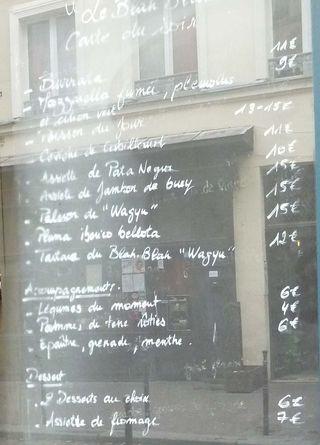 "Le Blah Blah
Carte du soir
- Burrata 11€
- Mozzarella fumée, pleurotes 9€
et citron vert
- Poisson du jour 13-15€
- Ceviche de 11€
- Assiette de Pata Negra 10€
- Assiette de Jambon de 15€
- de "Wagyu" 15€
- Pluma iberico bellota 15€
- Tartare du Blah-Blah "Wagyu" 12€
Accompagnements.
- Légumes du moment 6€
- Pommes de terre rôties 4€
- Epautre, grenade, menthe. 6€
Dessert
- Desserts au choix 6€
- Assiette de fromage 7€